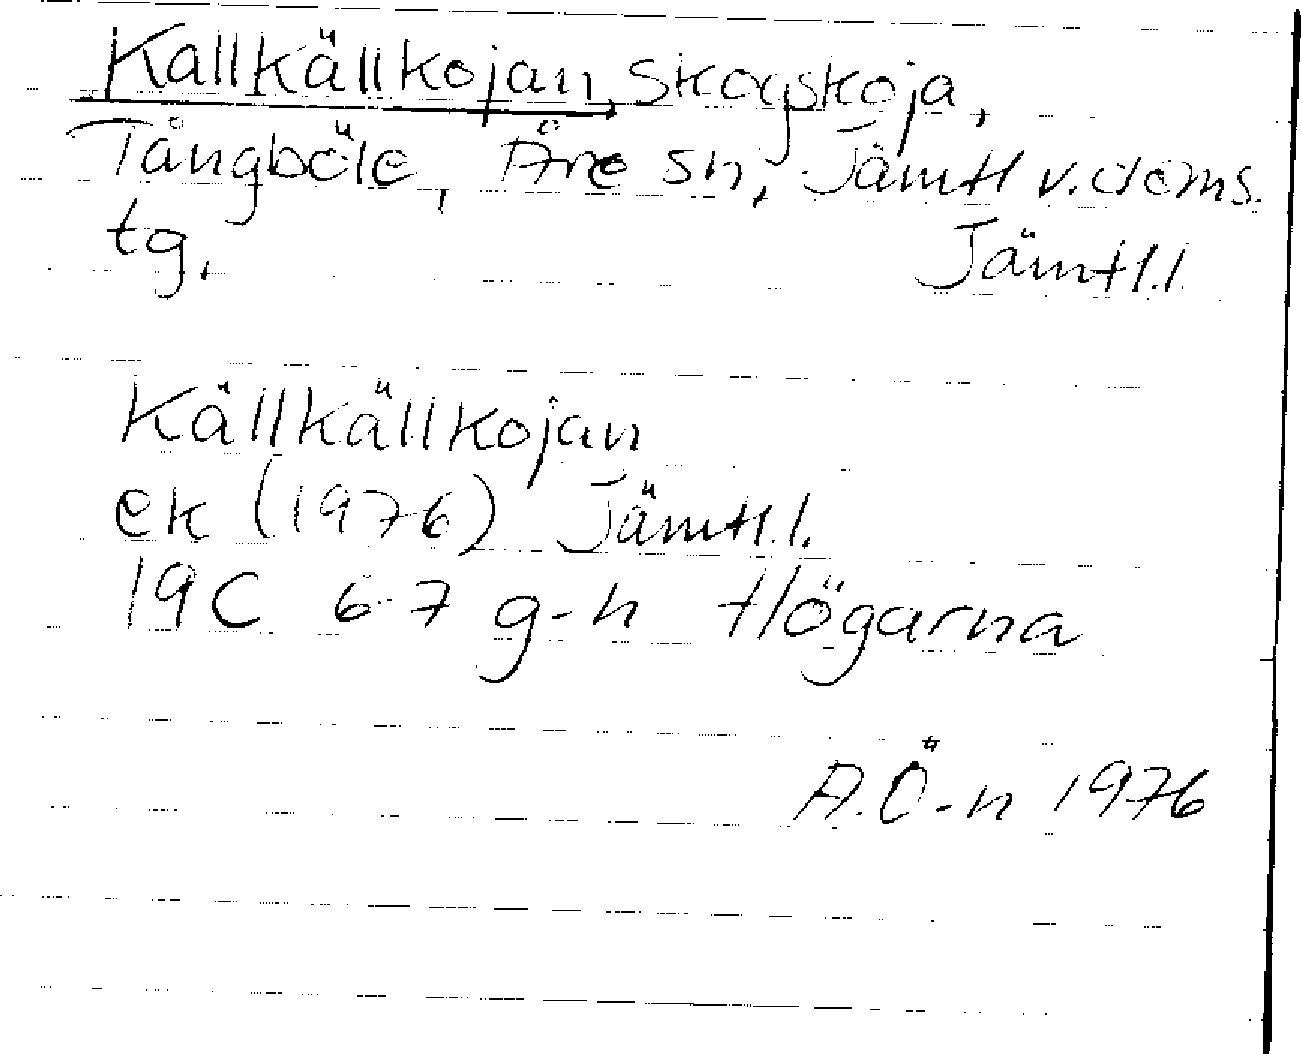 Kallkällkojan, skogskoja,
Tångböle, Åre sn, Jämtl v. doms.
tg,
Jämtl.l
Källkällkojan
ek (1976) Jämtl.l.
19C 6-7 g-h Högarna
A.Ö-n 1976